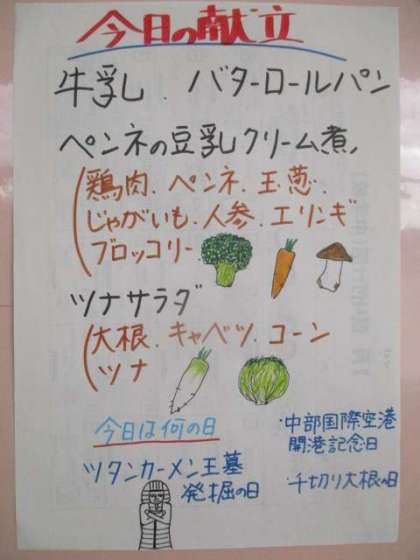 今日の献立
牛乳、バターロールパン
ペンネの豆乳クリーム煮
鶏肉、ペンネ、玉葱、
じゃがいも、人参、エリンギ
ブロッコリー
ツナサラダ
大根、キャベツ、コーン
ツナ
今日は何の日
ツタンカーメン王墓
発掘の日
・中部国際空港
開港記念日
・千切り大根の日